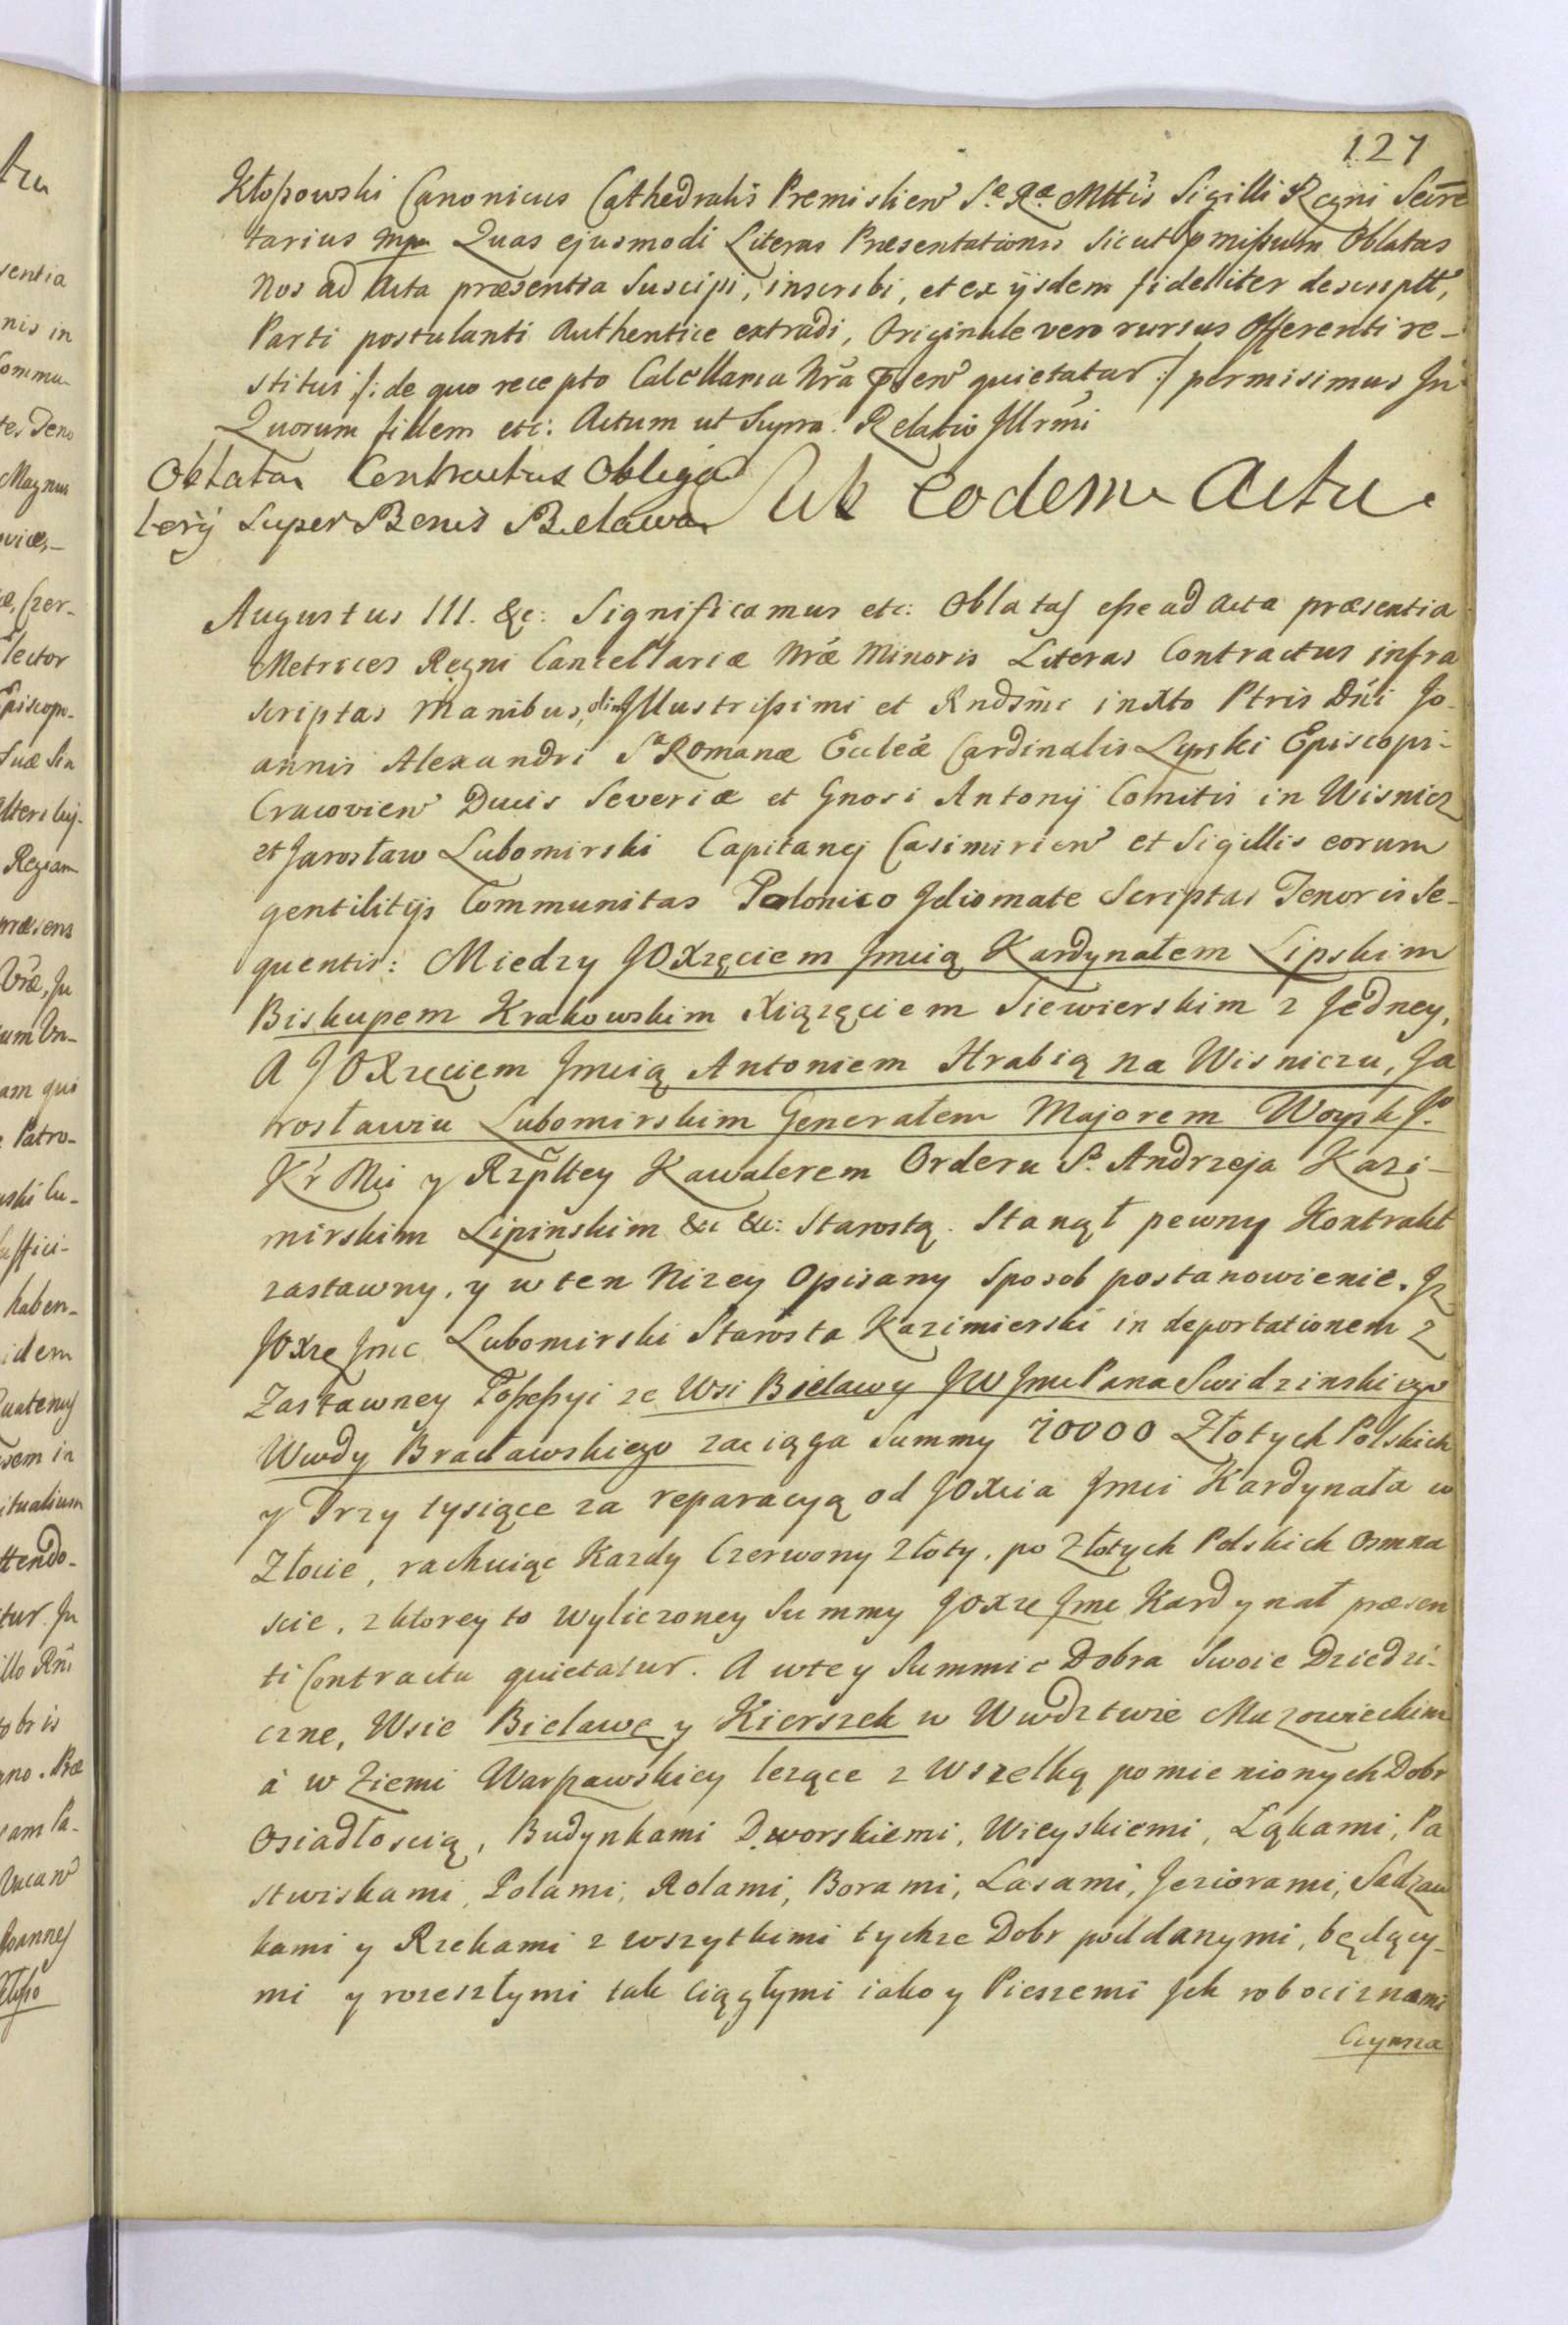 127
Kłopowski Canonicus Cathedralis Premislien S.æ R.æ Mttis Sigilli Regni Secre
tarius mpa Quas ejusmodi Literas Præsentationis sicut pmißum Oblatas
Nos ad Acta præsentia Suscipi, inscribi, et ex ijsdem fidelliter descriptt,
Parti postulanti Authentice extradi, Originale vero rursus Offerenti re-
stitui /: de quo recepto Calcellaria Nra quietatur :/ permisimus In
Quorum fidem etc: Actum ut Supra. Relatio Illrmi
Oblata Contractus Obliga
torÿ Super Bonis Bielawa
Ut eodem Actu.
Augustus III. &c: Significamus etc: Oblatas eße ad Acta præsentia
Metrices Regni Cancellariæ Nræ Minoris Literas Contractus infra
scriptas Manibus, olim Illustrißimi et Rndsmi inxto Ptris Dni Jo-
annis Alexandri S.R Romanæ Eccleæ Cardinalis Lipski Episcopi-
Cracovien Ducis Severiæ et Gnosi Antonij Comitis in Wisnicz
et Jarosław Lubomirski Capitanej Casimirien et Sigillis eorum
gentilitijs Communitas Polonico Jdiomate Scriptas Tenoris Se-
quentis: Miedzy JOXzęciem Jmcią Kardynałem Lipskim
Biskupem Krakowskim Xiązęciem Siewierskim z Jedney,
A JOXzęciem Jmcią Antoniem Hrabią na Wisniczu, Ja
rosławiu Lubomirskim Generałem Majorem Woysk J.o
Kr Mci y Rzpltey Kawalerem Orderu S.o Andrzeja Kazi-
mirskim Lipinskim &c &c: Starostą. Stanął pewny Kontrakt
zastawny, y w ten Nizey Opisany Sposob postanowienie. Jz
JOXze Jmc Lubomirski Starosta Kazimierski in deportationem z
Zastawney Poßeßyi ze Wsi Bielawy JW Jmc Pana Swidzinskiego
Wwdy Bracławskiego zaciąga Summy 70000 Złotych Polskich
y Trzy tysiące za reparacyą od JOXcia Jmci Kardynała w
Złocie, rachuiąc Kazdy Czerwony złoty, po Złotych Polskich Osmna
scie, z ktorey to wyliczoney Summy JOXze Jmc Kardynał præsen
ti Contractu quietatur. A wtey Summie Dobra Swoie Dziedzi-
czne, Wsie Bielawę y Kierszek w Wwdztwie Mazowieckim
à w Ziemi Warszawskiey lezące z Wszelką pomienionych Dobr
Osiadłoscią, Budynkami Dworskiemi, Wieyskiemi, Łąkami, Pa
stwiskami, Polami, Rolami, Borami, Lasami, Jeziorami, Sadzaw
kami y Rzekami z wszytkimi tychze Dobr poddanymi, będący-
mi y rozeszłymi tak ciągłymi iako y Pieszemi Jch robociznami
Czynsza